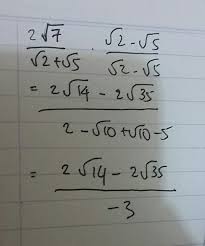 2√7 / √2+√5 · √2-√5 / √2-√5
= 2√14 - 2√35 / 2-√10+√10-5
= 2√14 - 2√35 / -3